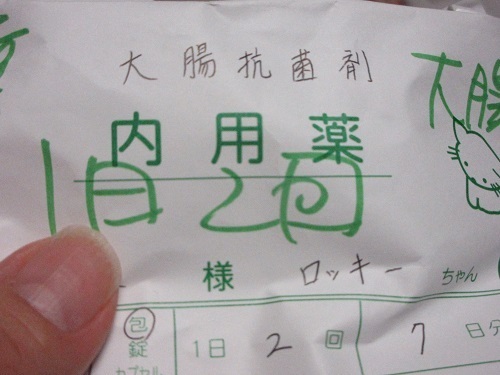 大腸抗菌剤
大腸
内用薬
1日2回
様 ロッキー ちゃん
包 1日 2 回 7 日分
錠
カプセル